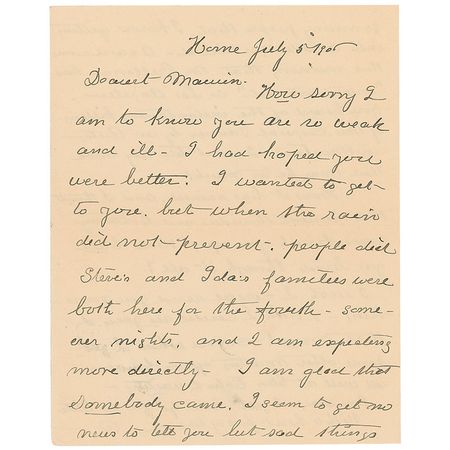 Home July 5" 1905
Dearest
How sorry I
am to know you are so weak
and ill - I had hoped you
were better. I wanted to get
to you. but when the rain
did not prevent. people did
Steve's and Ida's families were
both here for the fourth - some
over nights. and I am expecting
more directly - I am glad that
Somebody came. I seem to get no
news to tell you but sad things